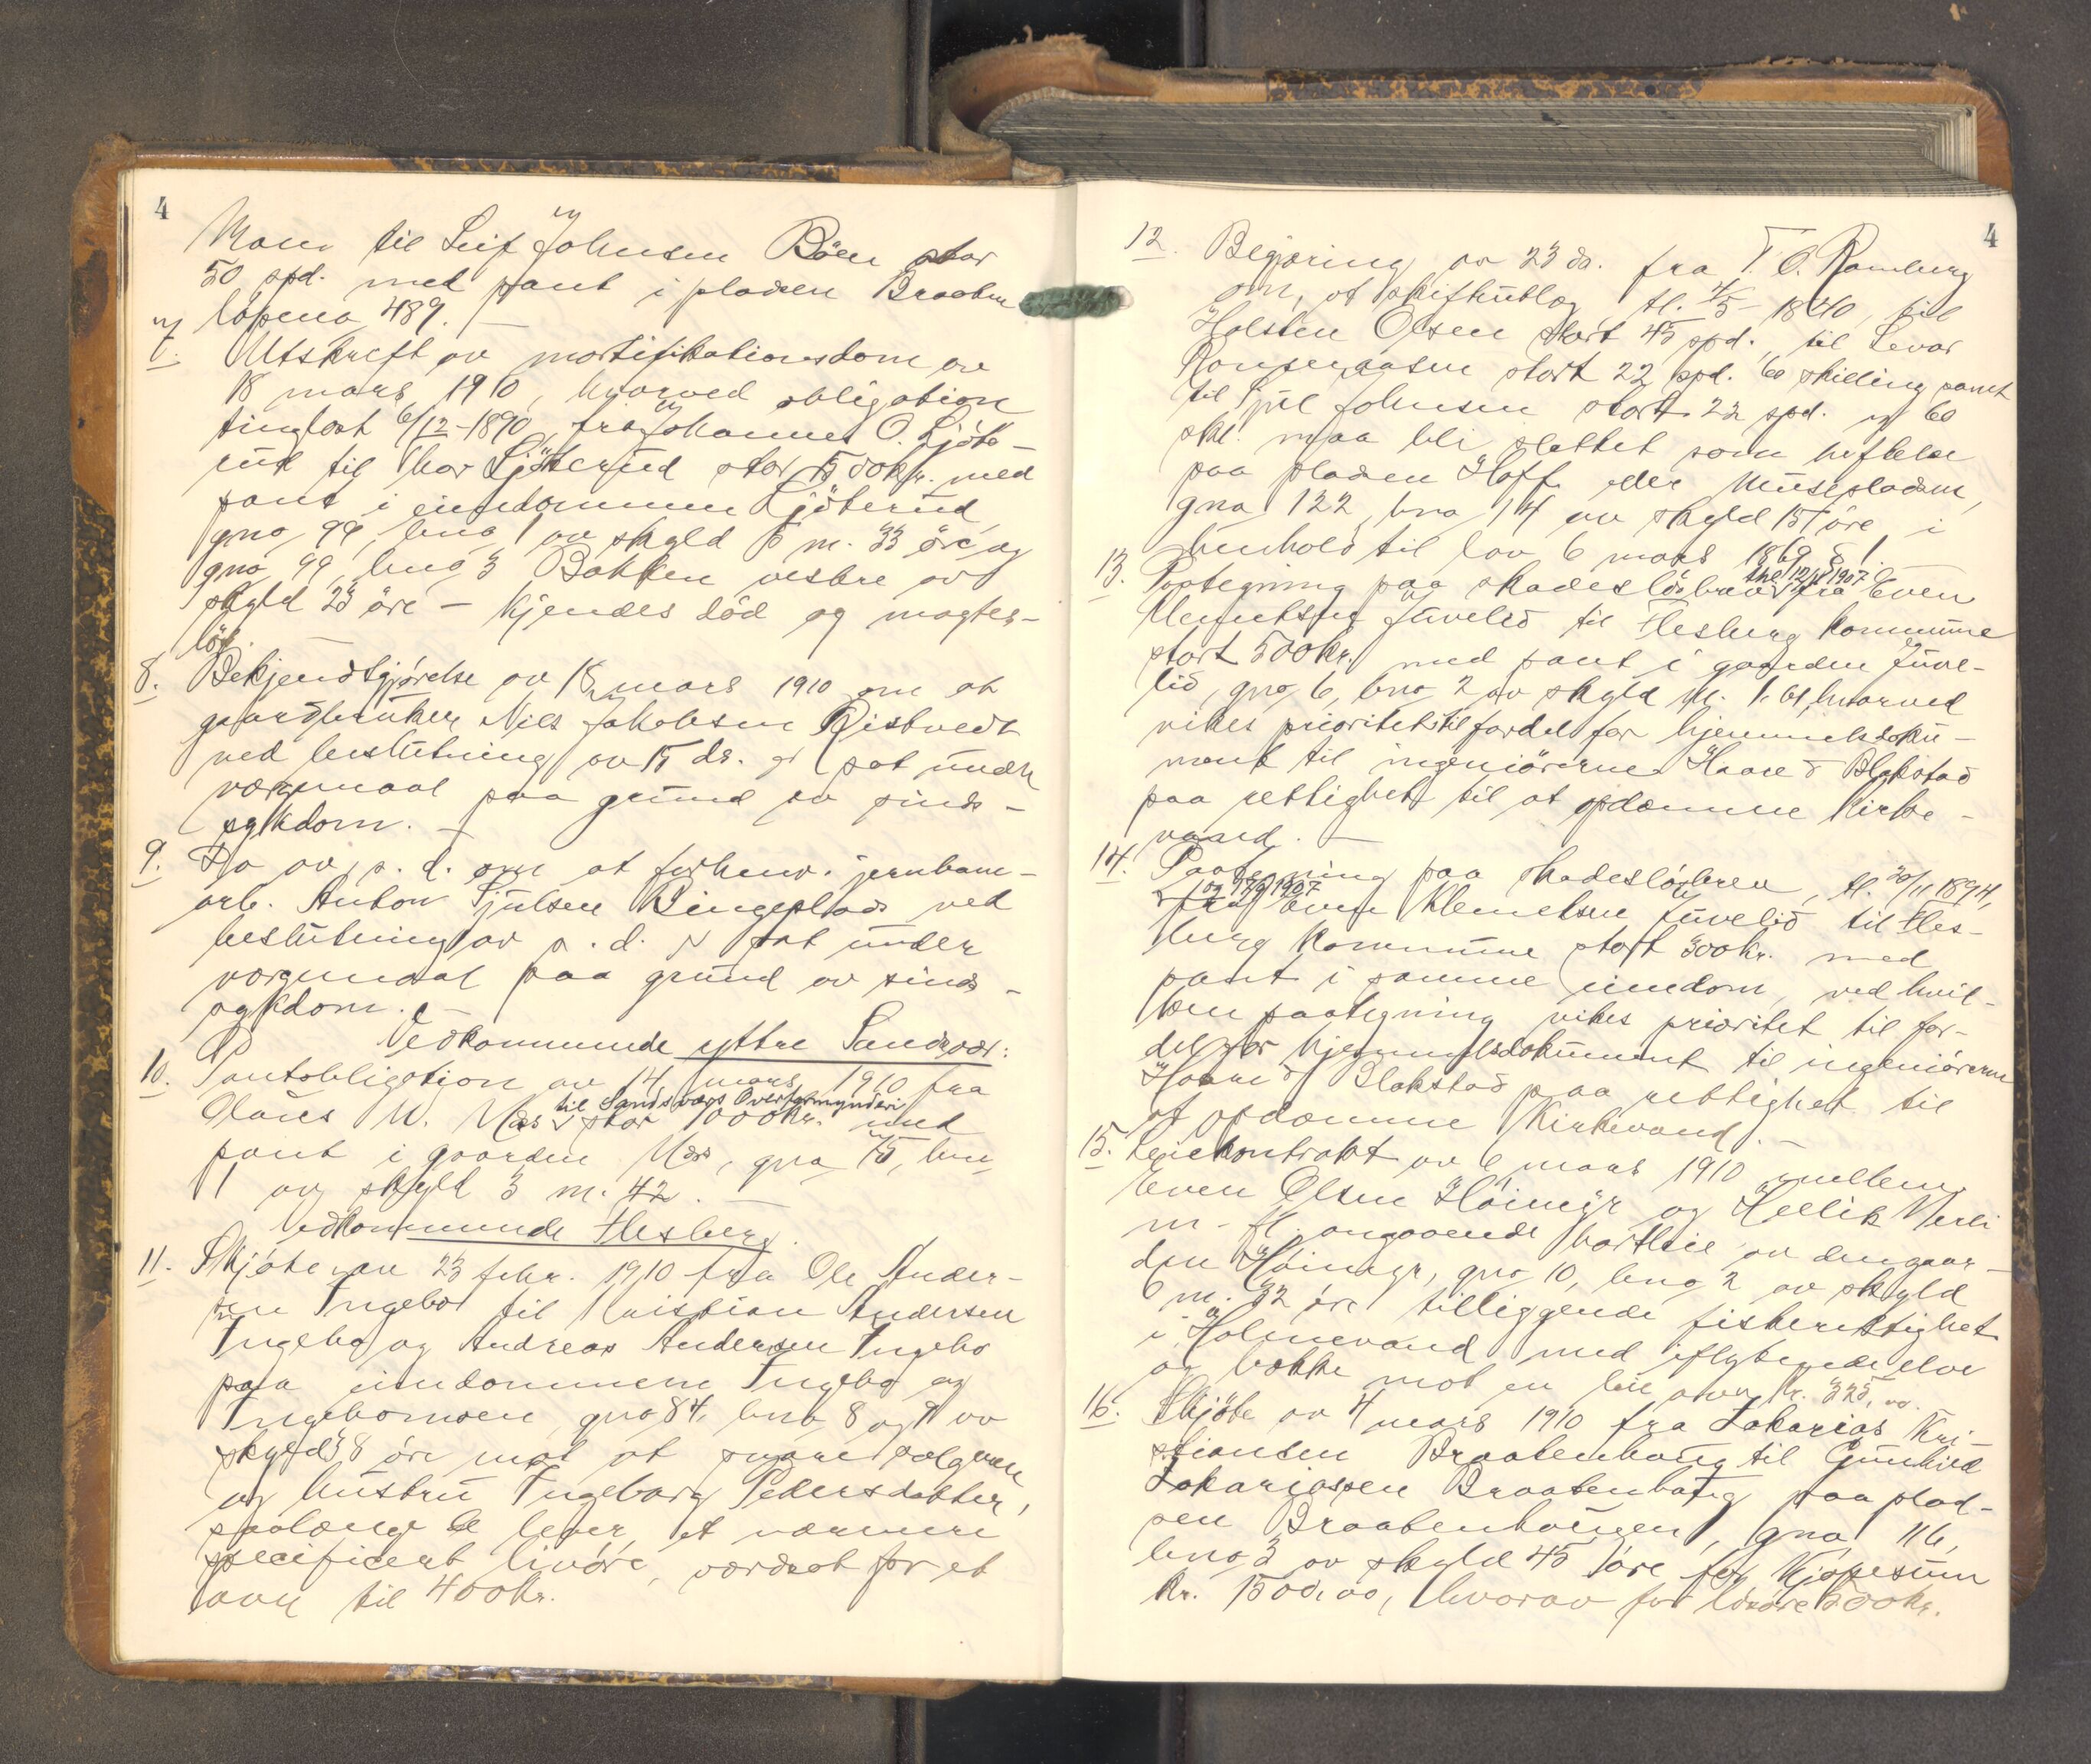 4
Moen til Leif Johnsen Böen stor
50 spd. med pant i pladsen Braaten
löpeno 489. —
7. Utskrift av mortifikationsdom av
18 mars 1910, hvorved obligation
tinglæst 6/12-1890 fra Johannes O. Ljöte-
rud til Thor Ljöterud stor 1500 kr. med
pant i eiendommen Ljöterud,
gno 99, bno 1 av skyld 6 m. 33 öre og
gno 99, bno 3 Bakken vestre av
skyld 23 öre — kjendes död og magtes-
lös. —
8. Bekjendtgjörelse av 18 mars 1910 om at
gaardbruker Nils Jakobsen Ristvedt
ved beslutning av 15 ds. er sat under
værgemaal paa grund av sinds-
sykdom. —
9. Do av s. d. om at forhenv. jernbane-
arb. Anton Tjulsen Bingeplads ved
beslutning av s. d. er sat under
værgemaal paa grund av sinds-
sykdom. —
Vedkommende yttre Sandsvær:
10. Pantobligation av 14 mars 1910 fra
til Sandsværs Overformynderi
Olaus M. Mæs stor 1000 kr. med
pant i gaarden Mæs, gno 15, bno
1 av skyld 3 m. 42. —
Vedkommende Flesberg.
11. Skjöte av 23 febr. 1910 fra Ole Ander-
sen Ingebo til Kristian Andersen
Ingebo og Andreas Andersen Ingebo
paa eiendommene Ingebo og
Ingebomoen gno 84, bno 8 og 9 av
skyld 38 öre mot at svare sælgeren
og hustru Ingeborg Pedersdatter,
saalænge de lever, et nærmere
specificert livöre, værdsat for et
aar til 400 kr.
4
12. Begjæring av 23 ds. fra T. O. Ramberg
om, at skifteutlæg, tl. 4/5-1840, til
Halsten Olsen stort 45 spd., til Sevar
stort 22 spd. 60 skilling samt
til Tjul Johnsen stort 22 spd. og 60
skl. maa bli slettet som heftelse
paa pladsen Hoff eller Musepladsen,
gno 122, bno 14 av skyld 15 öre i
henhold til lov 6 mars 1869 § 1. —
13. Paategning paa skadeslösbrev tl 12/8 1907 fra Even
Klemetsen Juvelid til Flesberg kommune
stort 500 kr. med pant i gaarden Juve-
lid, gno 6, bno 2 av skyld M. 1.61, hvorved
vikes prioritet til fordel for hjemmelsdoku-
ment til ingeniörerne Haare & Blakstad
paa rettighet til at opdæmme Kirke-
vand. —
14. Paategning paa skadeslösbrev, tl. 20/11 1894,
og 17/9 1907
fra Even Klemetsen Juvelid til Fles-
berg kommune stort 300 kr. med
pant i samme eiendom, ved hvil-
ken paategning vikes prioritet til for-
del for hjemmelsdokument til ingeniörerne
Haare & Blakstad paa rettighet til
at opdæmme Kirkevand. —
15. Leiekontrakt av 6 mars 1910 mellem
Even Olsen Höimyr og Hellik Værli
m. fl. angaaende bortleie av den gaar-
den Höimyr, gno 10, bno 2 av skyld
6 m. 32 öre tilliggende fiskerettighet
i Holmevand med iflytende elve
og bække mot en leie av kr. 325,00.
16. Skjöte av 4 mars 1910 fra Zakarias Kri-
stiansen Braatenhaug til Gunhild
Zakariassen Braatenhaug paa plad-
sen Braatenhaugen, gno 116,
bno 3 av skyld 45 öre for kjöpesum
kr. 1500,00, hvorav for lösöre 500 kr.